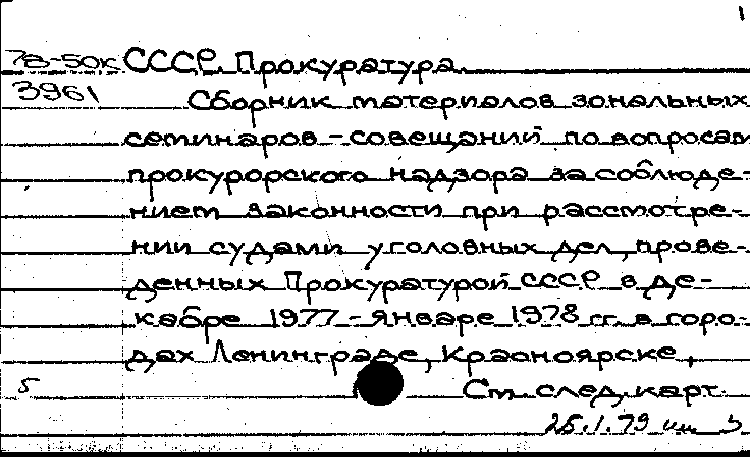 1
78-50к СССР. Прокуратура.
3961 Сборник материалов зональных
семинаров-совещаний по вопросам
прокурорского надзора за соблюде-
нием законности при рассмотре-
нии судами уголовных дел, прове-
денных Прокуратурой СССР в де-
кабре 1977-январе 1978 гг. в горо-
дах Ленинграде, Красноярске,
5 См. след. карт.
25.1.79